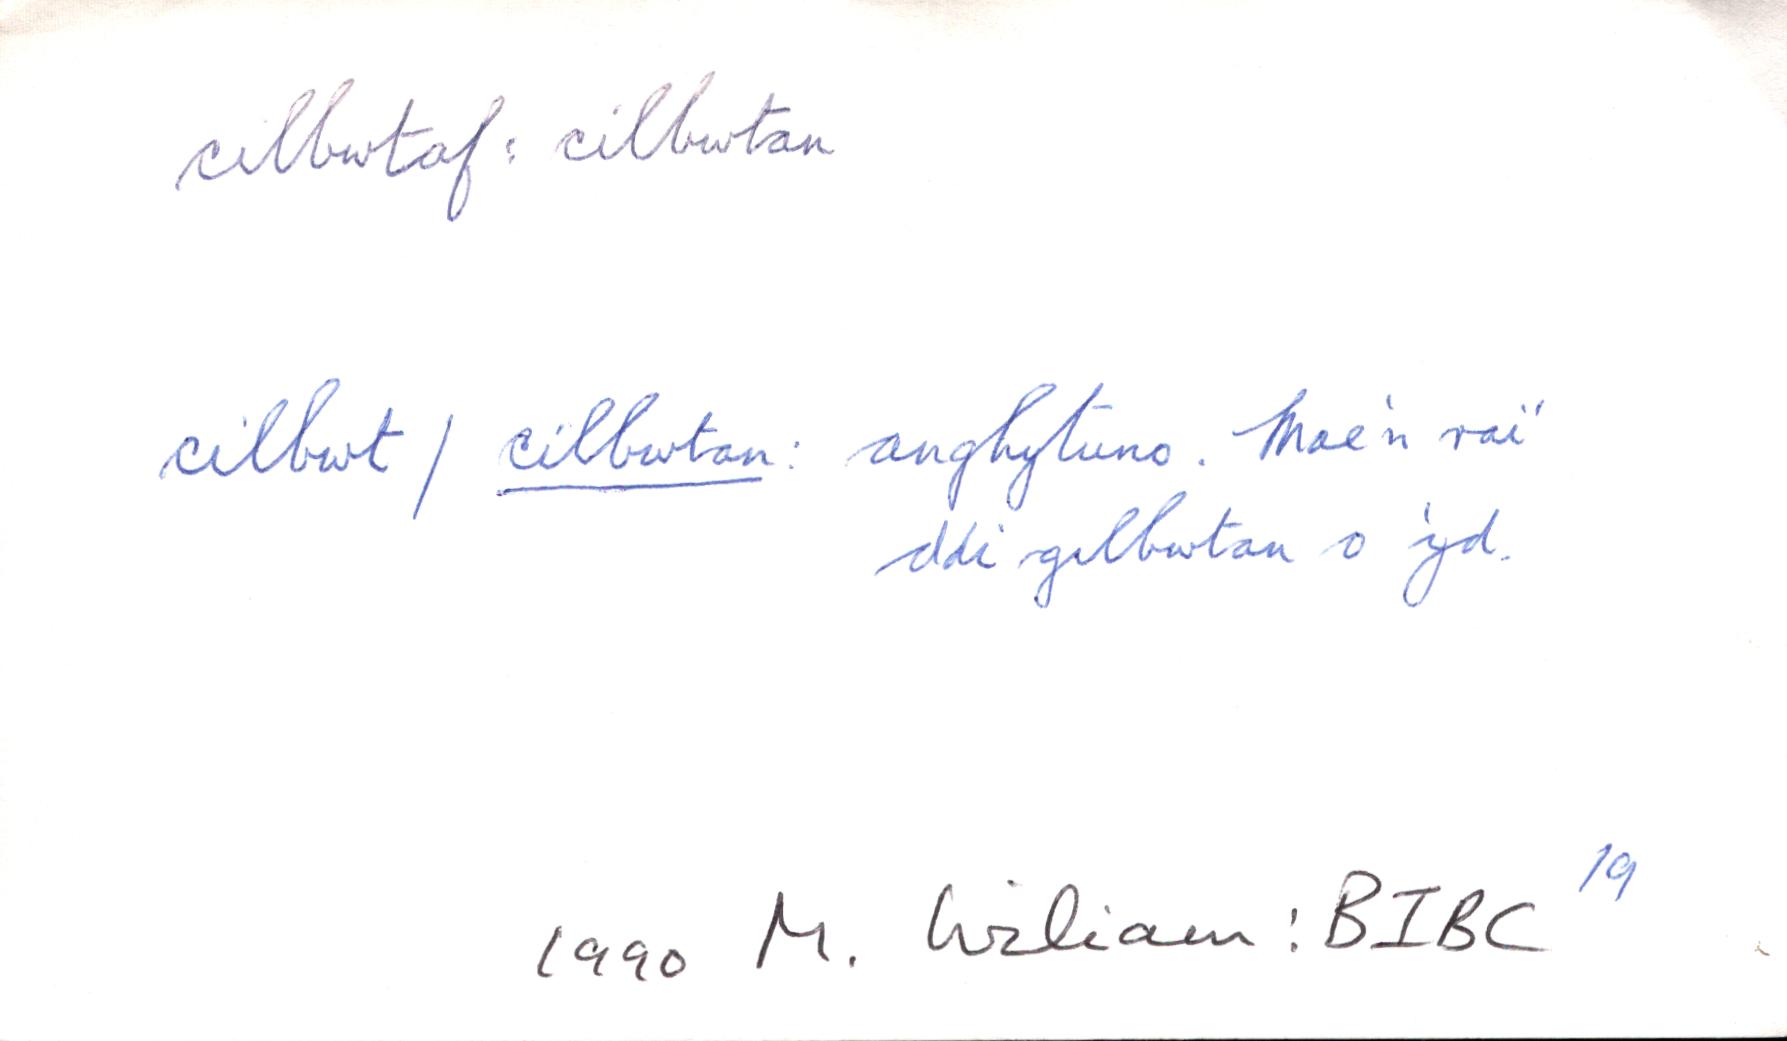 cilbwtaf: cilbwtan
cilbwt / cilbwtan: anghytuno. Mae'n rai'
ddi gilbwtan o 'yd.
1990 M. Wiliam: BIBC 19